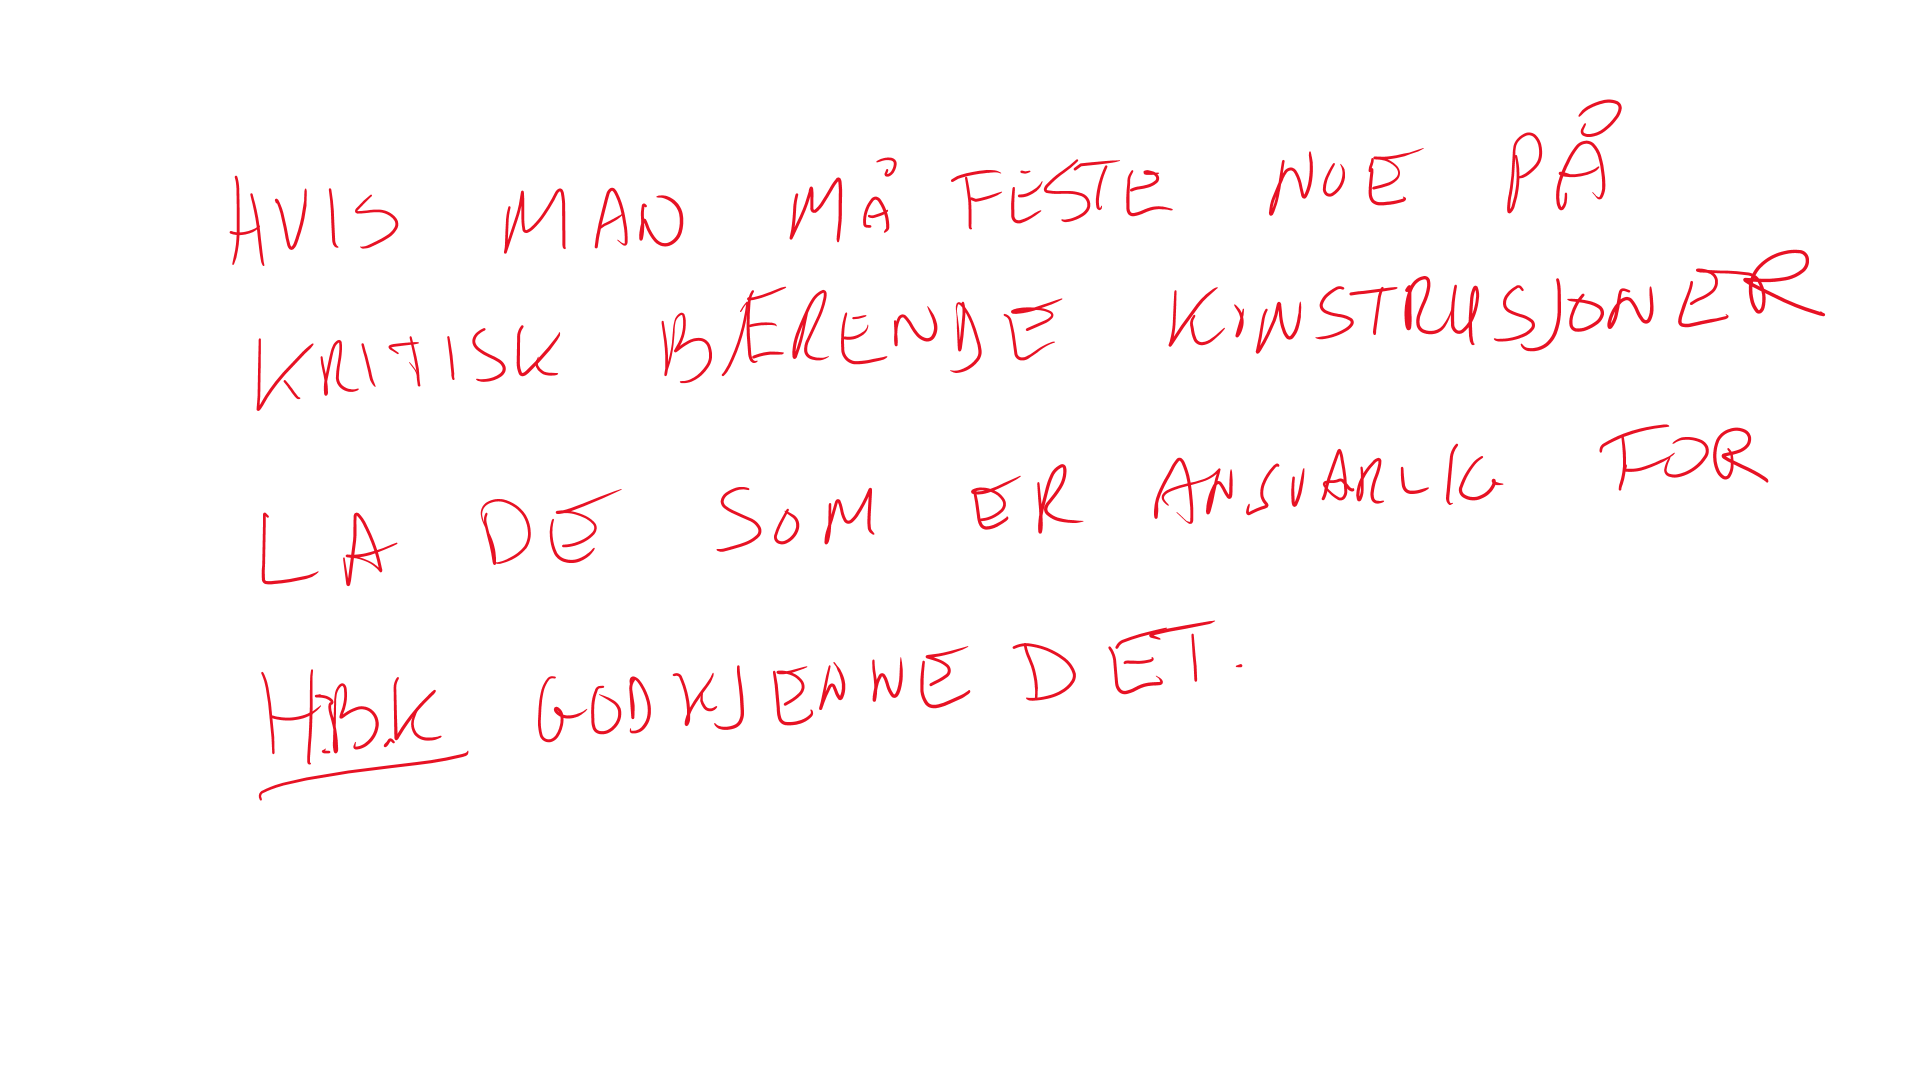 HVIS MAN MÅ FESTE NOE PÅ
KRITISK BÆRENDE KINSTRUSJONER
LA DE SOM ER ANSVARLIG FOR
H.B.K GODKJENNE DET.